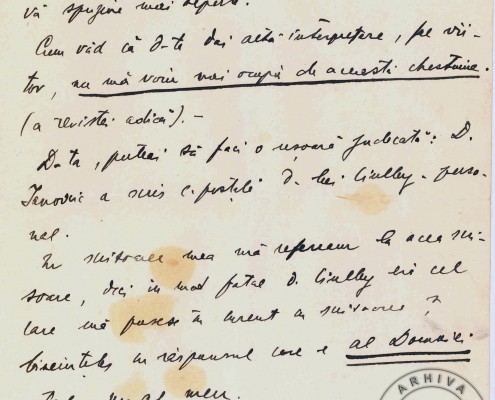 vă sprijine mai departe.
Cum văd că d-ta dai altă interpretare, pe vii-
tor, nu mă voiu mai ocupa de această chestiune.
(a revistei adică). -
D-ta, puteai să faci o ușoară judecată: D.
Ianovic a scris d. lui Ciulley - perso-
nal.
În scrisoarea mea mă refeream la acea scri-
soare, deci în mod fatal d. Ciulley era cel
care mă pusese în curent cu scrisoarea,
bineînțeles cu răspunsul care e al Domniei
al meu.
ARHIVA